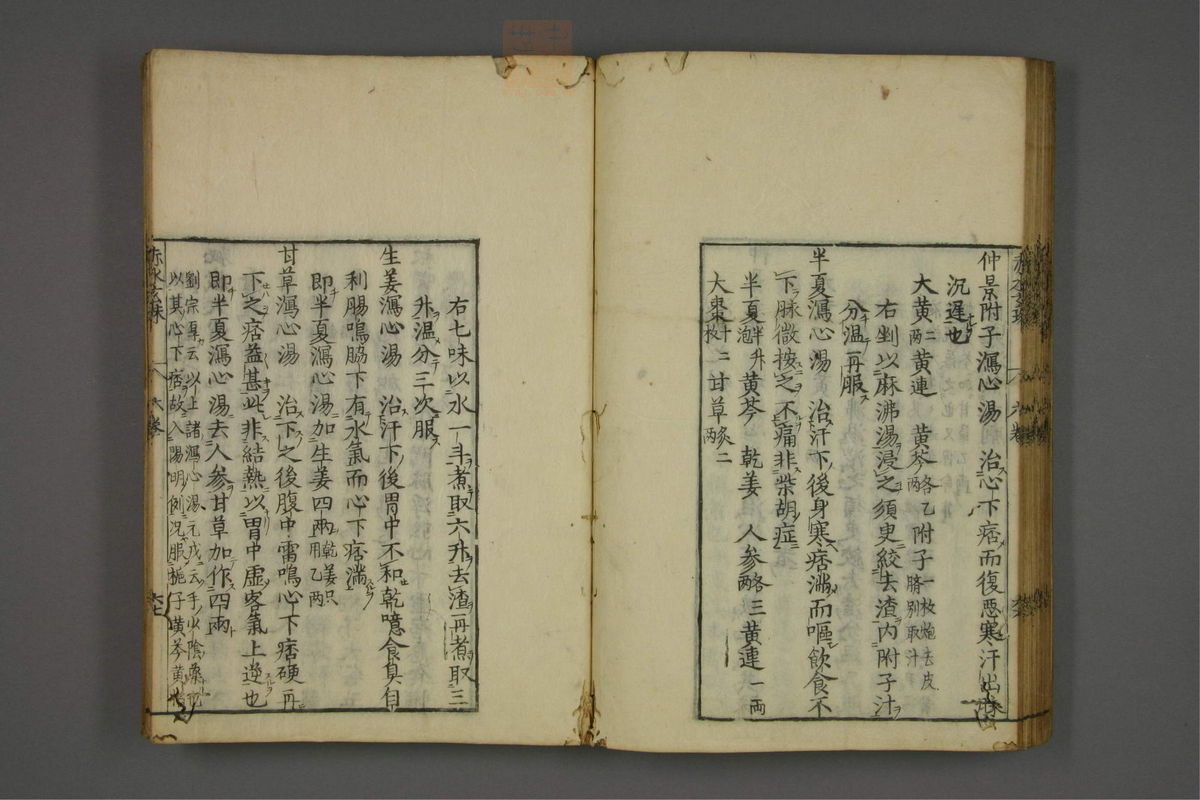 仲景附子瀉心湯 治心下痞而復惡寒汗出
沉遲也
大黃二兩 黃連 黃芩各乙兩 附子一枚炮去皮臍別取汁
右剉以麻沸湯浸之須臾絞去渣内附子汁
分温再服
半夏瀉心湯 治汗下後身寒痞滿而嘔飲食不
下脉微按之不痛非柴胡症
半夏半升泡 黃芩 乾姜 人參各三兩 黃連一兩
大棗十二枚 甘草炙二兩
右七味以水一斗煮取六升去渣再煮取三
升温分三次服
生姜瀉心湯 治汗下後胃中不和乾噫食臭自
利腸鳴脇下有水氣而心下痞滿
即半夏瀉心湯加生姜四兩乾姜只用乙兩
甘草瀉心湯 治下之後腹中雷鳴心下痞硬再
下之痞益甚此非結熱以胃中虛客氣上逆也
即半夏瀉心湯去人參甘草加作四兩
劉宗厚云以上諸瀉心湯元戎云手少陰藥也
以其心下痞故入陽明例況服梔子黃芩黃
赤水玄珠 六卷